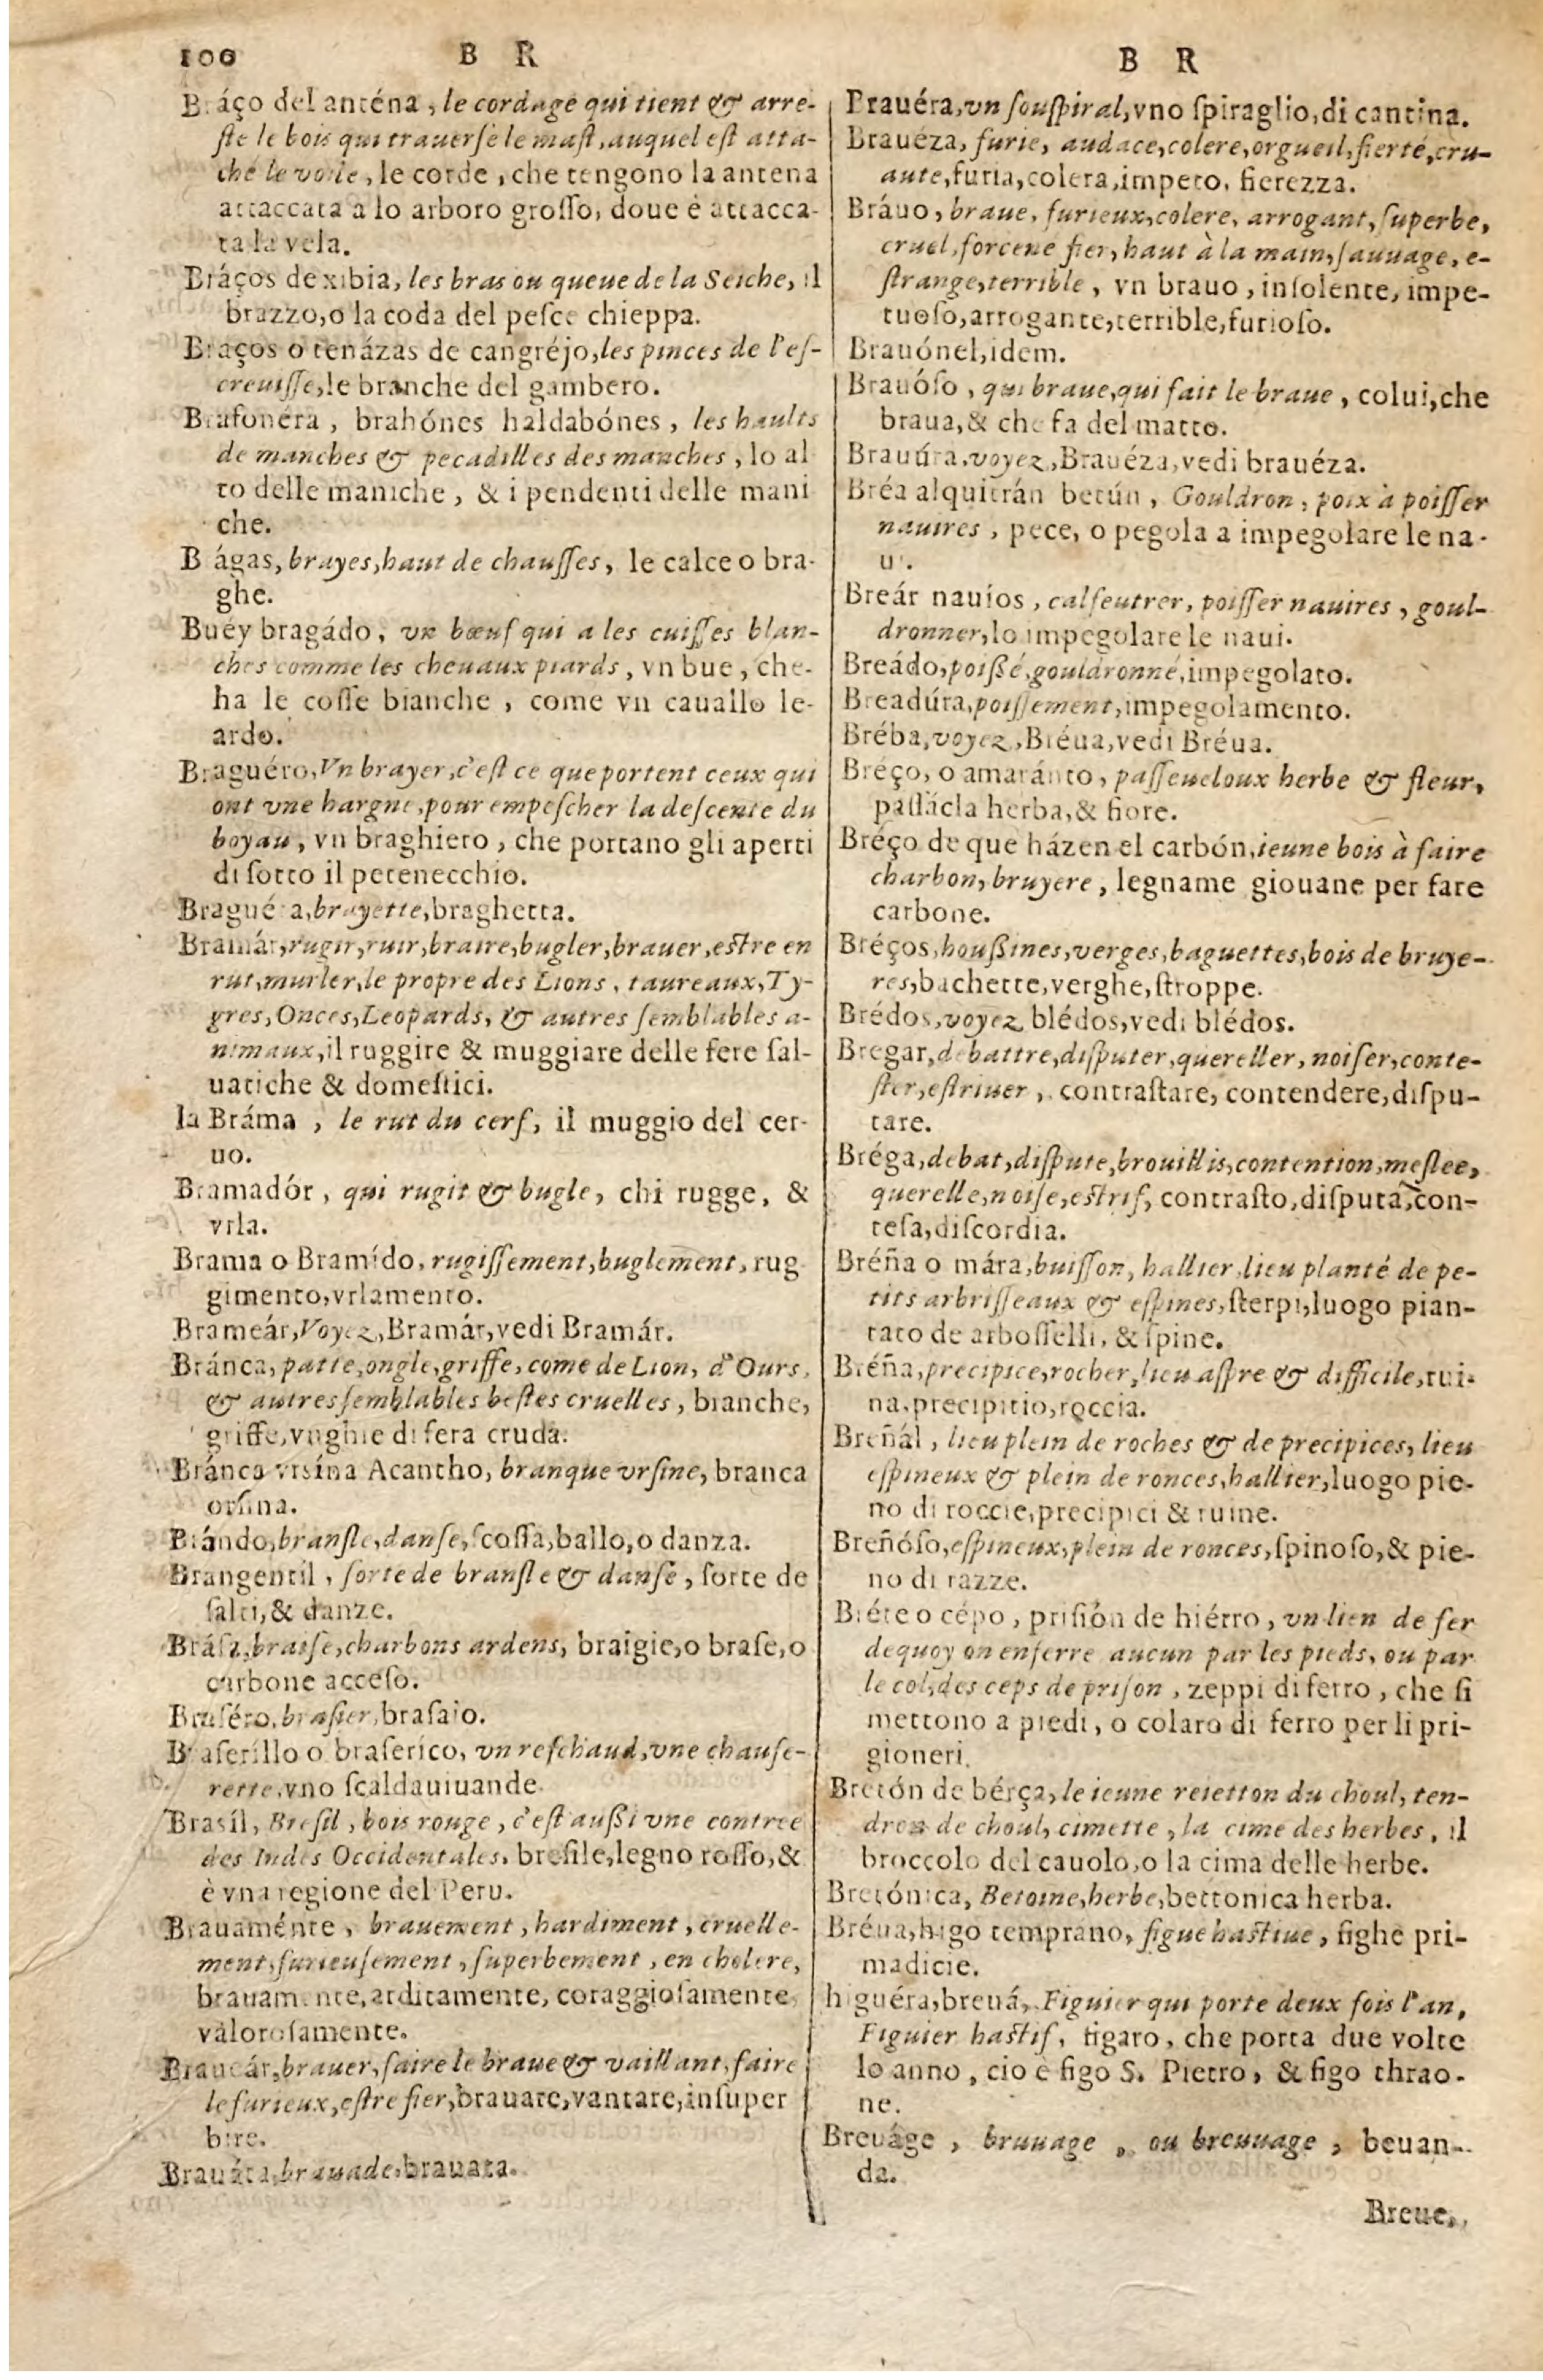 100 B R
Bráço del anténa, le cordage qui tient & arre-
ſte le bois qui trauerſe le maſt, auquel eſt atta-
ché le voile, le corde, che tengono la antena
attaccata a lo arboro groſſo, doue è attacca-
ta la vela.
Bráços de xibia, les bras ou queue de la Seiche, il
brazzo, o la coda del peſce chieppa.
Braços o tenázas de cangréjo, les pinces de l'eſ-
creuiſſe, le branche del gambero.
Brafonéra, brahónes haldabónes, les haults
de manches & pecadilles des manches, lo al
to delle maniche, & i pendenti delle mani
che.
B ágas, brayes, haut de chauſſes, le calce o bra-
ghe.
Buéy bragádo, vn bœuf qui a les cuiſſes blan-
ches comme les cheuaux piards, vn bue, che-
ha le coſſe bianche, come vn cauallo le-
ardo.
Braguéro, Vn brayer, c'eſt ce que portent ceux qui
ont vne hargne, pour empeſcher la deſcente du
boyau, vn braghiero, che portano gli aperti
di ſotto il petenecchio.
Bragué a, brayette, braghetta.
Bramár, rugir, ruir, braire, bugler, brauer, estre en
rut, murler, le propre des Lions, taureaux, Ty-
gres, Onces, Leopards, & autres ſemblables a-
nimaux, il ruggire & muggiare delle fere ſal-
uatiche & domeſtici.
la Bráma, le rut du cerf, il muggio del cer-
uo.
Bramadór, qui rugit & bugle, chi rugge, &
vrla.
Brama o Bramído, rugiſſement, buglement, rug
gimento, vrlamento.
Brameár, Voyez, Bramár, vedi Bramár.
Bránca, patte, ongle, griffe, come de Lion, d'Ours,
& autres ſemblables beſtes cruelles, bianche,
griffe, vnghie di fera cruda.
Bránca vrsína Acantho, branque vrſine, branca
orſina.
Brándo, branſle, danſe, ſcoſſa, ballo, o danza.
Brangentil, ſorte de branſle & danſe, ſorte de
ſalti, & danze.
Bráſa, braiſe, charbons ardens, braigie, o braſe, o
carbone acceſo.
Braſéro, braſier, braſaio.
B aſeríllo o braſeríco, vn reſchaud, vne chauſe-
rette, vno ſcaldauiuande.
Brasíl, Breſil, bois rouge, c'eſt außi vne contree
des Indes Occidentales, breſile, legno roſſo, &
è vna regione del Peru.
Brauaménte, brauement, hardiment, cruelle-
ment, furieuſement, ſuperbement, en cholere,
brauamente, arditamente, coraggioſamente,
valoroſamente.
Braueár, brauer, faire le braue & vaillant, faire
le furieux, eſtre fier, brauare, vantare, inſuper
bire.
Brauáta, brauade, brauata.
B R
Brauéra, vn ſouſpiral, vno ſpiraglio, di cantina.
Brauéza, furie, audace, colere, orgueil, fierté, cru-
auté, furia, colera, impeto, fierezza.
Bráuo, braue, furieux, colere, arrogant, ſuperbe,
cruel, forcené fier, haut à la main, ſauuage, e-
ſtrange, terrible, vn brauo, inſolente, impe-
tuoſo, arrogante, terrible, furioſo.
Brauónel, idem.
Brauóſo, qui braue, qui fait le braue, colui, che
braua, & che fa del matto.
Brauúra, voyez, Brauéza, vedi brauéza.
Bréa alquitrán betún, Gouldron, poix à poiſſer
nauires, pece, o pegola a impegolare le na-
ui.
Breár nauíos, calfeutrer, poiſſer nauires, goul-
dronner, lo impegolare le naui.
Breádo, poißé, gouldronné, impegolato.
Breadúra, poiſſement, impegolamento.
Bréba, voyez, Bréua, vedi Bréua.
Bréço, o amaránto, paſſeueloux herbe & fleur,
herba, & fiore.
Bréço de que házen el carbón, ieune bois à faire
charbon, bruyere, legname giouane per fare
carbone.
Bréços, houßines, verges, baguettes, bois de bruye-
res, bachette, verghe, ſtroppe.
Brédos, voyez blédos, vedi blédos.
Bregar, debattre, diſputer, quereller, noiſer, conte-
ſter, eſtriuer, contraſtare, contendere, diſpu-
tare.
Bréga, debat, diſpute, brouillis, contention, meſlee,
querelle, noiſe, estrif, contraſto, diſputa, con-
teſa, diſcordia.
Bréña o máta, buiſſon, hallier, lieu planté de pe-
tits arbriſſeaux & eſpines, ſterpi, luogo pian-
tato de arboſſelli, & ſpine.
Bréña, precipice, rocher, lieu aſpre & difficile, rui-
na, precipitio, roccia.
Breñál, lieu plein de roches & de precipices, lieu
eſpineux & plein de ronces, hallier, luogo pie-
no di roccie, precipici & ruine.
Breñóſo, eſpineux, plein de ronces, ſpinoſo, & pie-
no di razze.
Bréte o cépo, priſión de hiérro, vn lien de fer
dequoy on enferre aucun par les pieds, ou par
le col, des ceps de priſon, zeppi di ferro, che ſi
mettono a piedi, o colaro di ferro per li pri-
gioneri.
Bretón de bérça, le ieune reietton du choul, ten-
dron de choul, cimette, la cime des herbes, il
broccolo del cauolo, o la cima delle herbe.
Bretónica, Betoine, herbe, bettonica herba.
Bréua, higo temprano, figue hastiue, fighe pri-
madicie.
higuéra, breuá, Figuier qui porte deux fois l'an,
Figuier hastif, figaro, che porta due volte
lo anno, cio è figo S. Pietro, & figo thrao-
ne.
Breuáge, bruuage, ou breuuage, beuan-
da.
Breue,